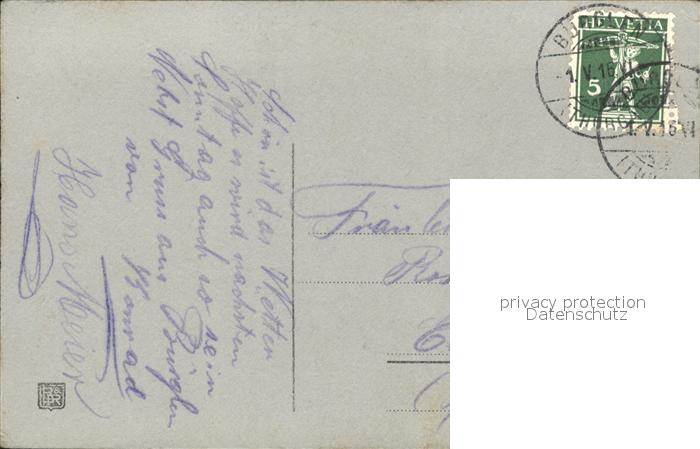 Schön ist das Wetter
hoffe es wird nächsten
Sonntag auch so sein
Nebst Gruss aus Bürglen
von Konrad
Hans Meier
Fräulein
HELVETIA
5
1. V. 16
1. V. 16 VI
privacy protection
Datenschutz